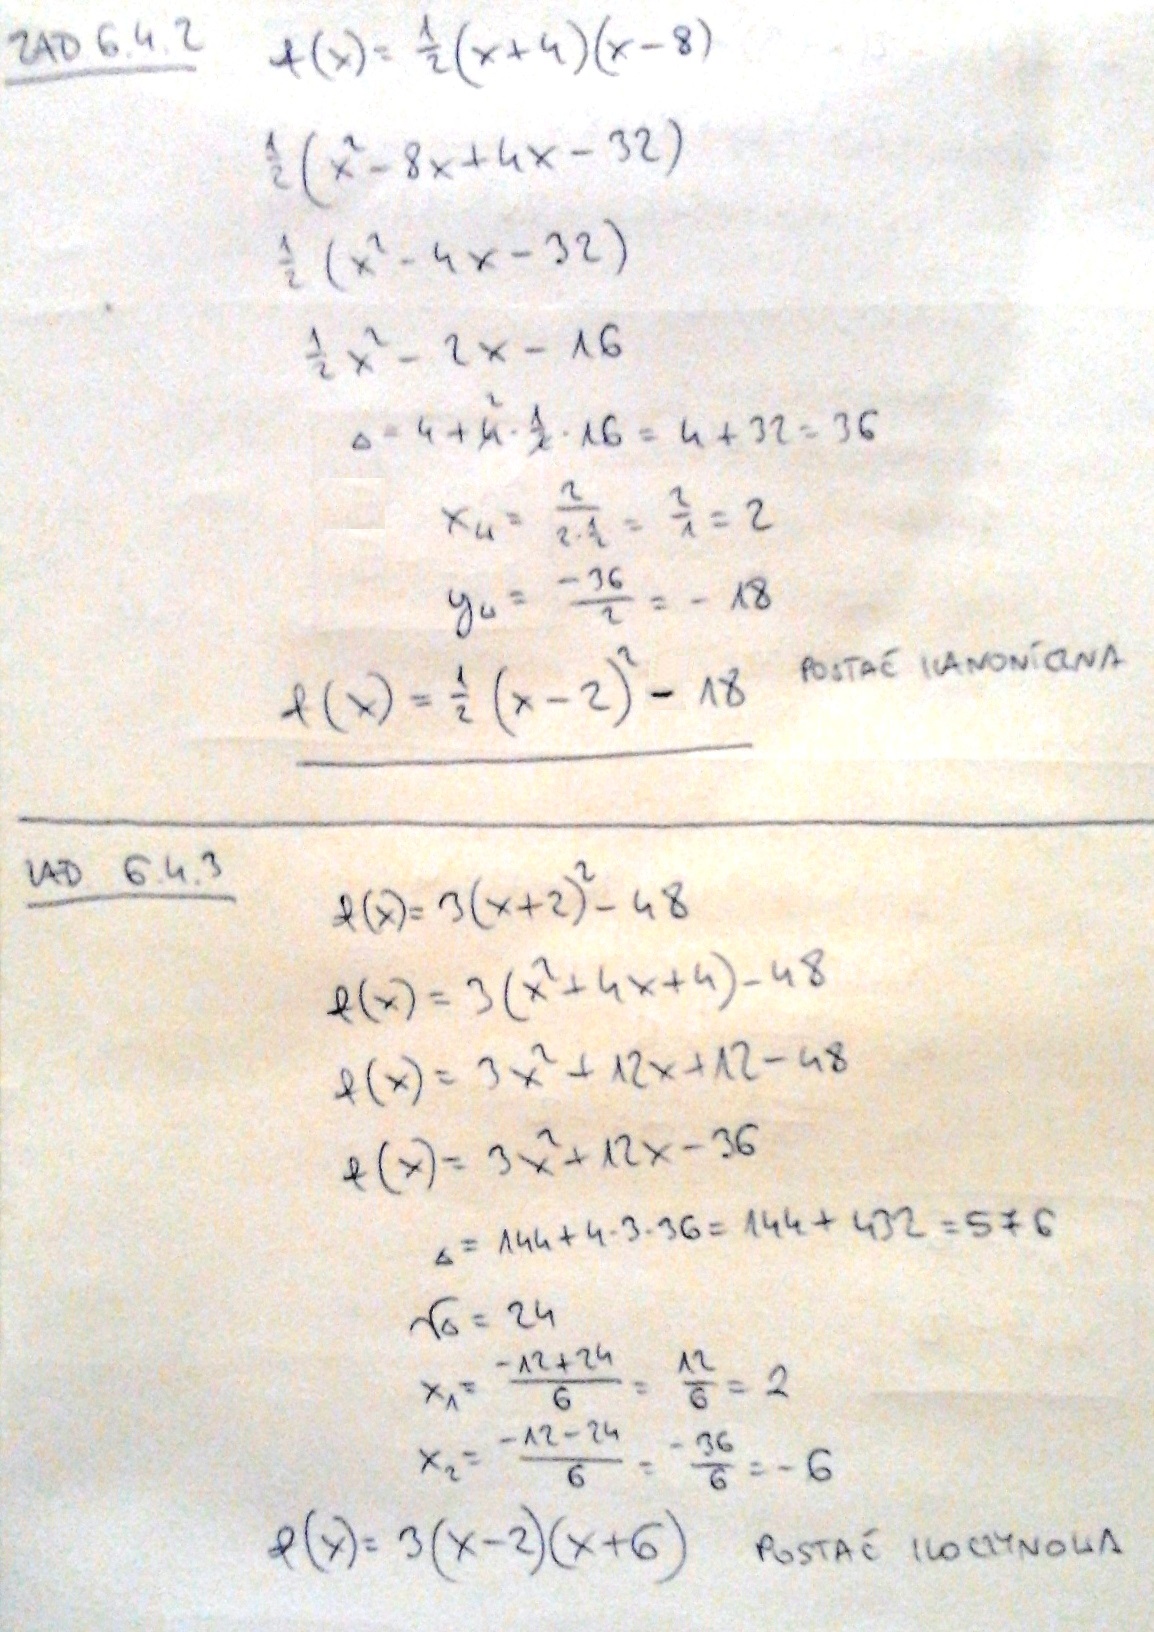 ZAD 6.4.2 f(x) = 1/2 (x+4)(x-8)
1/2 (x² - 8x + 4x - 32)
1/2 (x² - 4x - 32)
1/2 x² - 2x - 16
Δ = 4 + 4² · 1/2 · 16 = 4 + 32 = 36
x_w = 2/(2·1/2) = 2/1 = 2
y_w = -36/2 = -18
f(x) = 1/2 (x-2)² - 18 POSTAĆ KANONICZNA
ZAD 6.4.3
f(x) = 3(x+2)² - 48
f(x) = 3(x² + 4x + 4) - 48
f(x) = 3x² + 12x + 12 - 48
f(x) = 3x² + 12x - 36
Δ = 144 + 4·3·36 = 144 + 432 = 576
√Δ = 24
x₁ = (-12+24)/6 = 12/6 = 2
x₂ = (-12-24)/6 = -36/6 = -6
f(x) = 3(x-2)(x+6) POSTAĆ ILOCZYNOWA